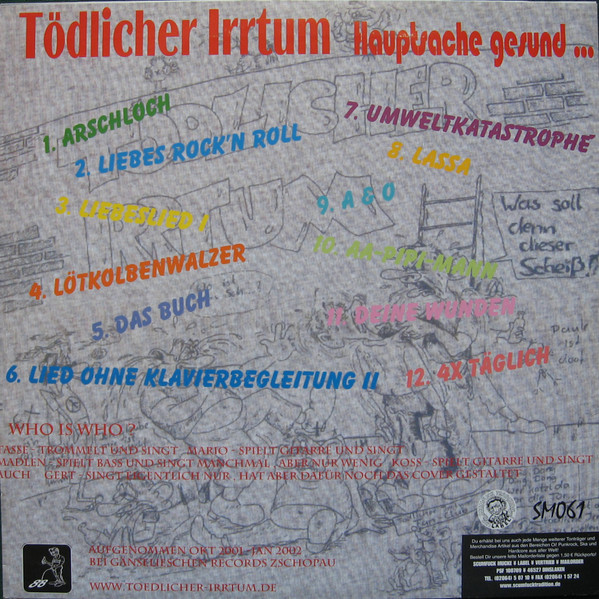 Tödlicher Irrtum Hauptsache gesund ...
1. ARSCHLOCH
2. LIEBES ROCK'N ROLL
3. LIEBESLIED I
4. LÖTKOLBENWALZER
5. DAS BUCH
6. LIED OHNE KLAVIERBEGLEITUNG II
7. UMWELTKATASTROPHE
8. LASSA
9. A & O
10. AK-PIPI-MANN
11. DEINE WUNDEN
12. 4X TÄGLICH
Was soll
denn
dieser
Scheiß!!
WHO IS WHO ?
TASSE - TROMMELT UND SINGT MARIO - SPIELT GITARRE UND SINGT
MADLEN - SPIELT BASS UND SINGT MANCHMAL, ABER NUR WENIG KOSS - SPIELT GITARRE UND SINGT
AUCH GERT - SINGT EIGENTLICH NUR, HAT ABER DAFÜR NOCH DAS COVER GESTALTET
AUFGENOMMEN OKT 2001 - JAN 2002
BEI GÄNSELIESCHEN RECORDS ZSCHOPAU
WWW.TOEDLICHER-IRRTUM.DE
SM061
Du erhälst bei uns auch jede Menge weiterer Tonträger und
Merchandise Artikel aus den Bereichen Oi! Punkrock, Ska und
Hardcore aus aller Welt!
Bestell Dir unsere fette Mailorderliste gegen 1,50 € Rückporto!
SCUMFUCK MUCKE LABEL VERTRIEB MAILORDER
PSF 100709 46527 DINSLAKEN
TEL. (02064) 5 07 10 FAX (02064) 7 24
www.scumfucktradition.de